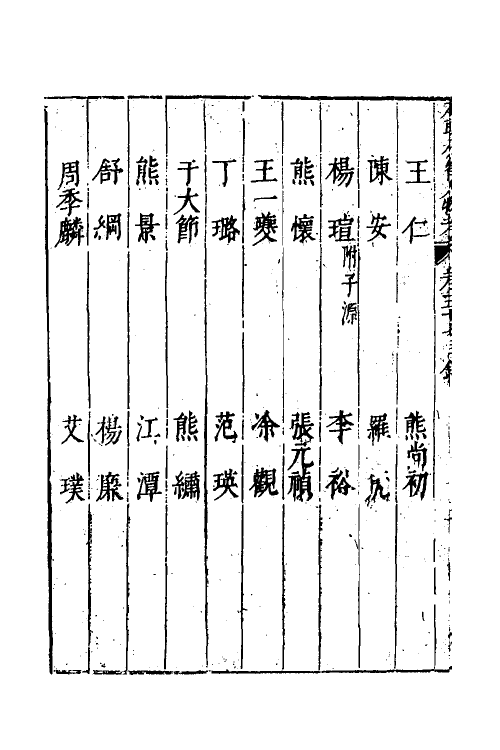 王仁　熊尚初
陳安　羅
楊瑄附子源　李裕
熊懷　張元禎
王一夔　涂觀
丁璐　范瑛
于大節　熊繡
熊景　江潭
舒綱　楊廉
周季麟　艾璞